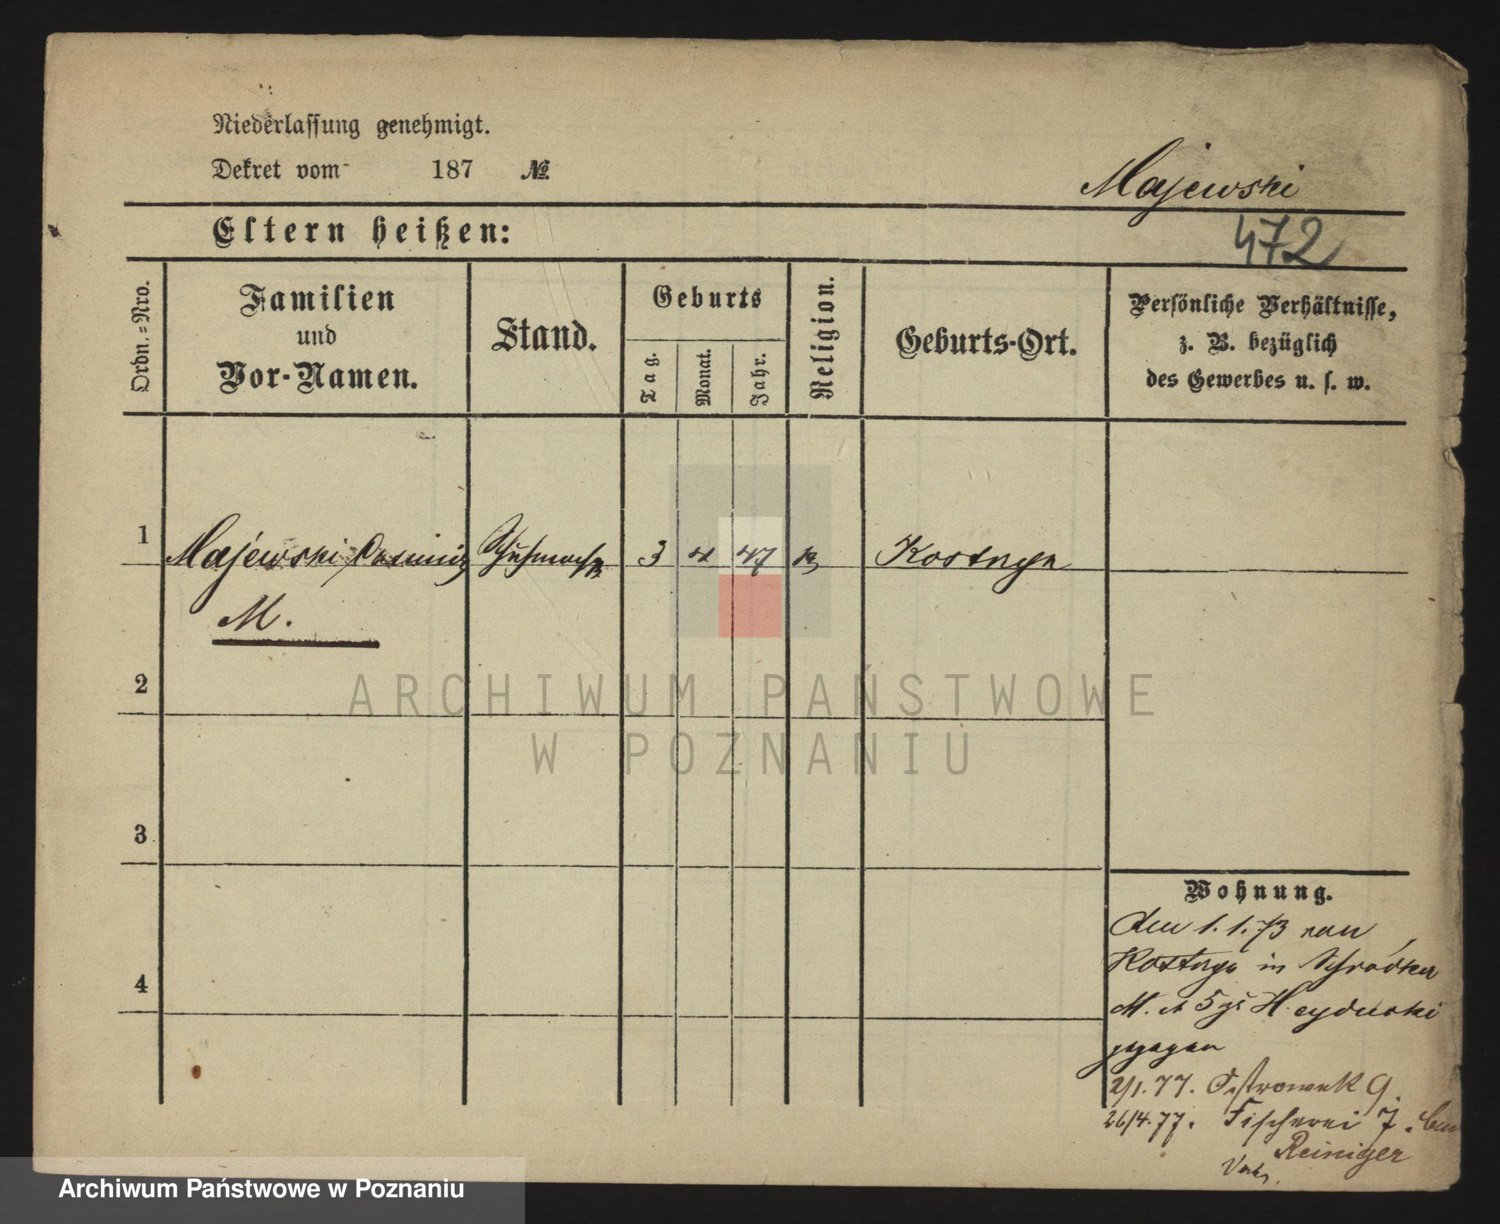 Niederlassung genehmigt.
Dekret vom 187 №
Majewski
Eltern heißen:
472
Ordn.=Nro.
Familien
und
Vor-Namen.
Stand.
Geburts
Tag.
Monat.
Jahr.
Religion.
Geburts-Ort.
Persönliche Verhältnisse,
z. B. bezüglich
des Gewerbes u. s. w.
1
Majewski 3 4 47 Kostrzyn
M.
2
ARCHIWUM PAŃSTWOWE
W POZNANIU
3
Wohnung.
den 1.1.73 von
in Schrodka
M. 5
4
2/1.77. Ostrowek 9.
26/4.77. Fischerei 7.
Reiniger
Archiwum Państwowe w Poznaniu